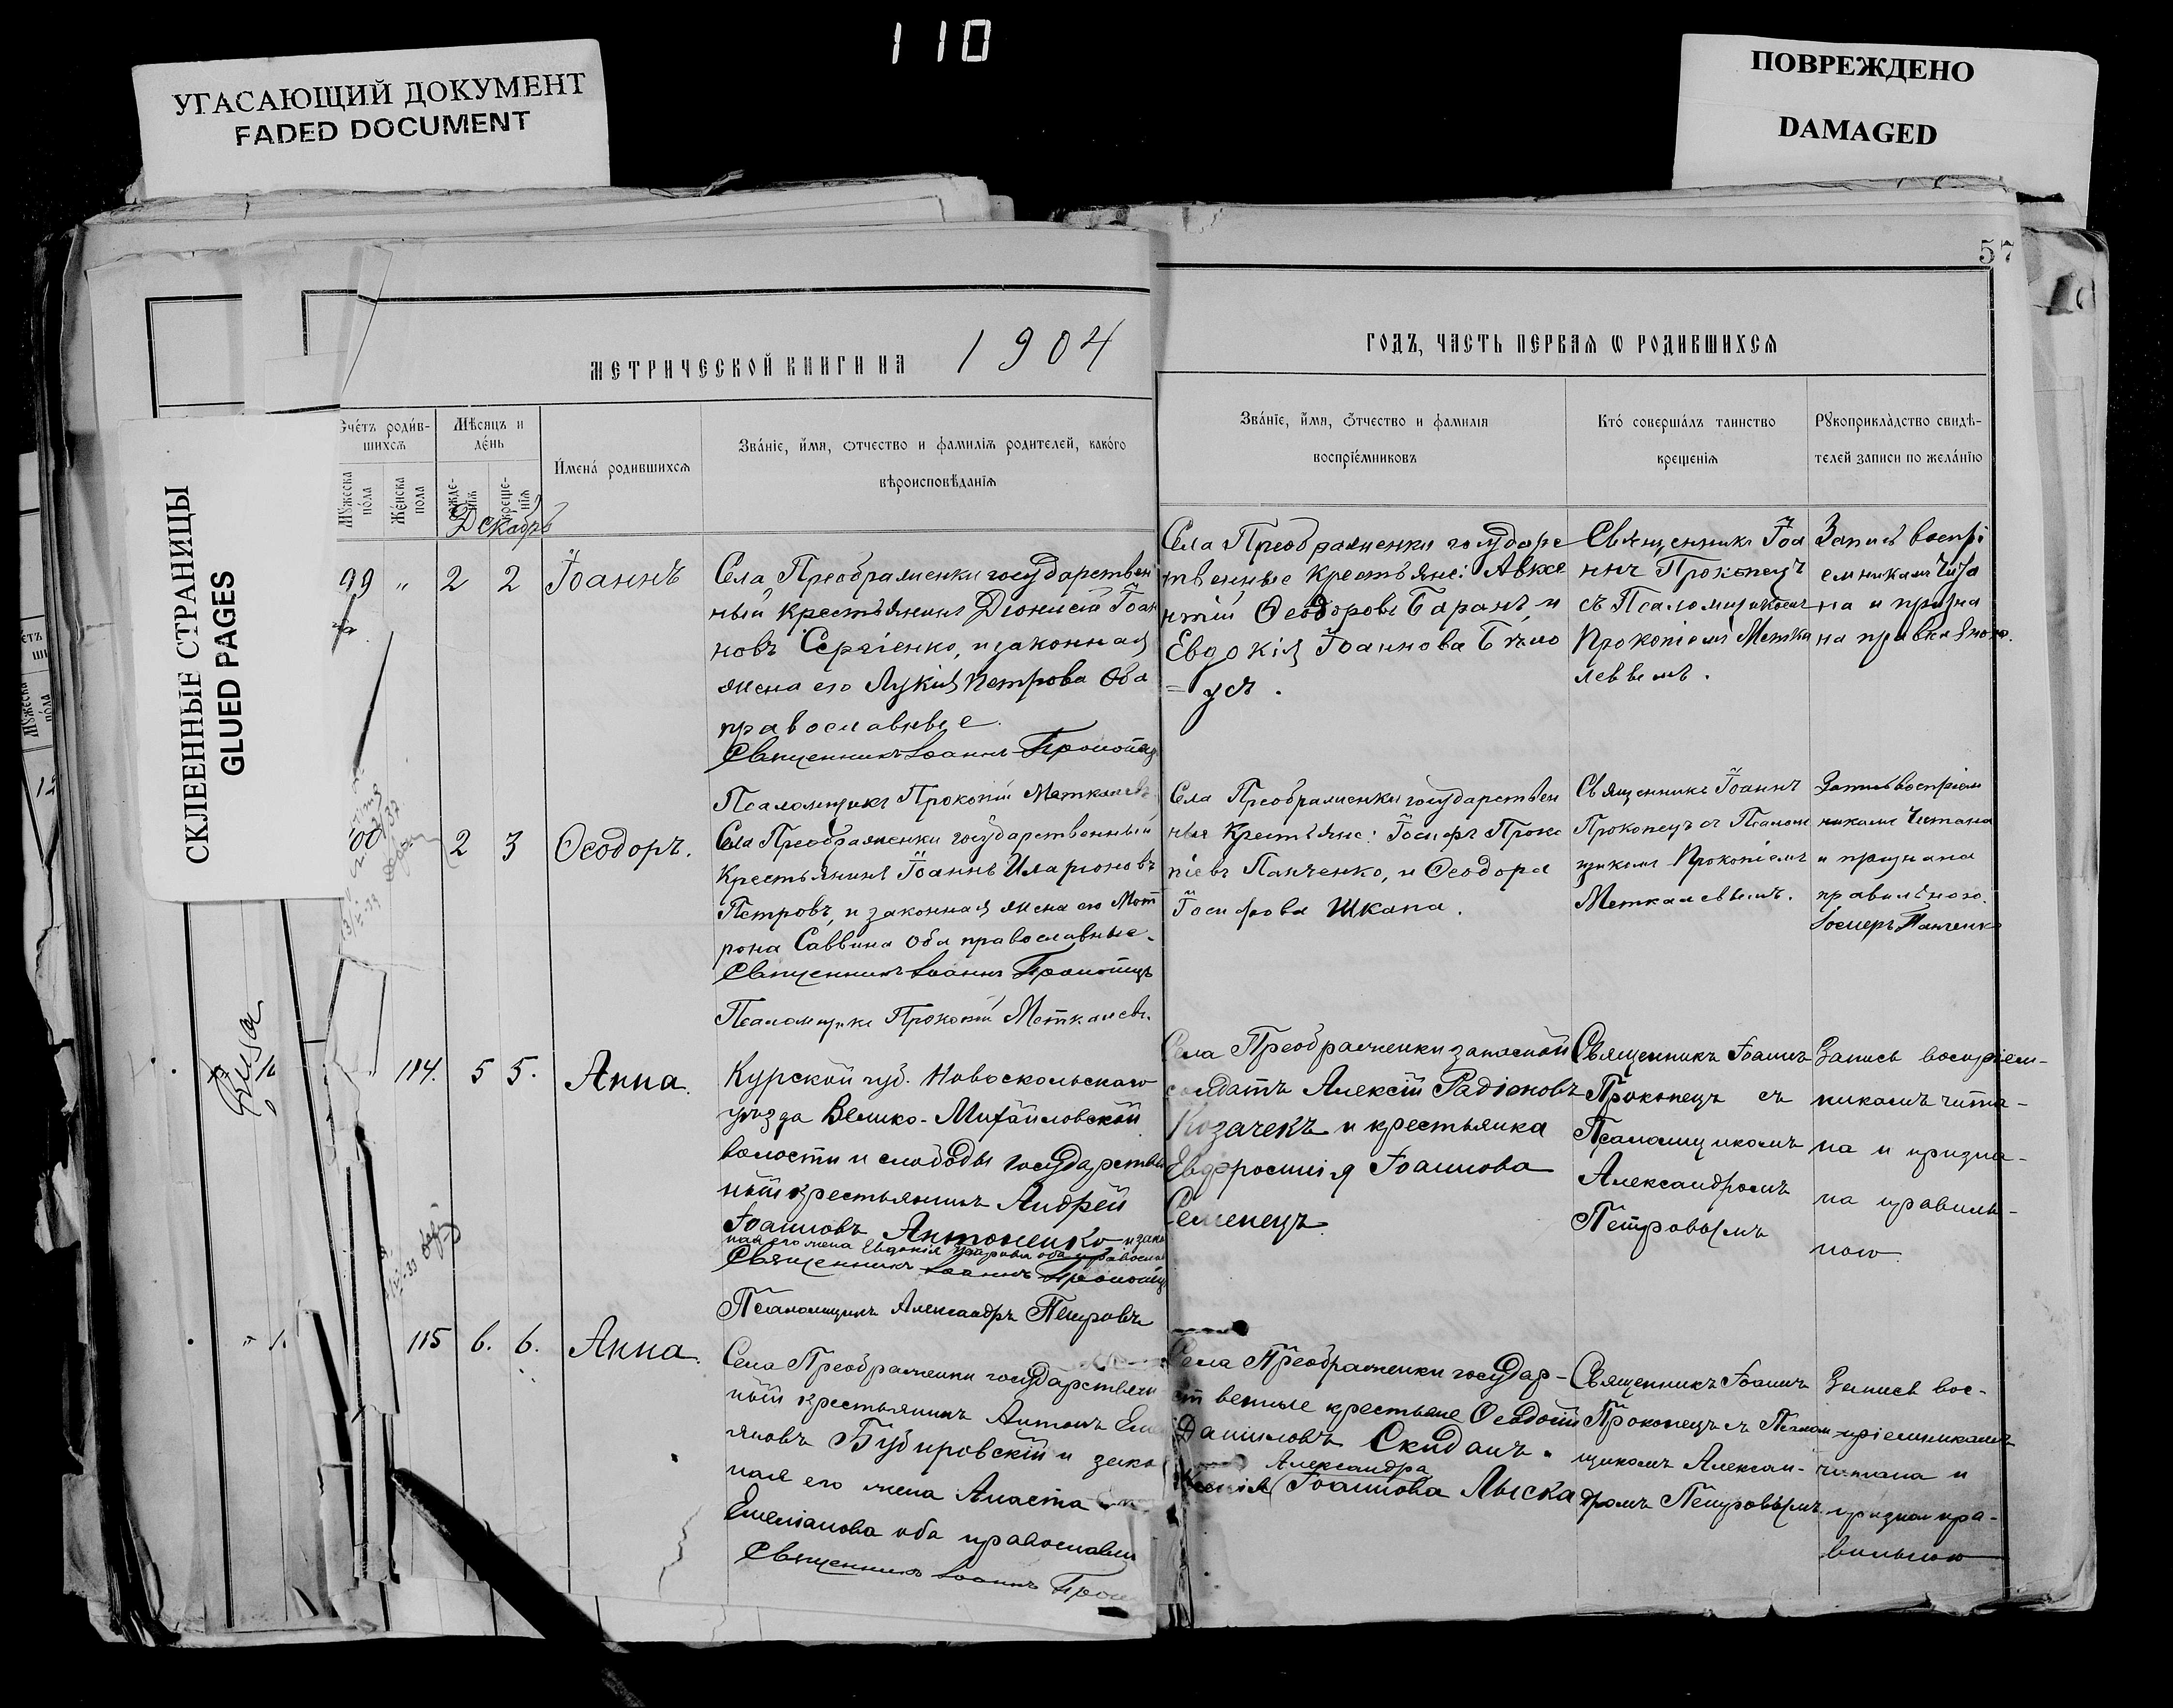 110
УГАСАЮЩИЙ ДОКУМЕНТ
FADED DOCUMENT
ПОВРЕЖДЕНО
DAMAGED
СКЛЕЕННЫЕ СТРАНИЦЫ
GLUED PAGES
57
МЕТРИЧЕСКОЙ КНИГИ НА 1904
ГОДЪ, ЧАСТЬ ПЕРВАЯ Ѡ РОДИВШИХСЯ
Счетъ родив-
шихся
Мꙋжеска
пола
Женска
пола
Мѣсяцъ и
день
креще-
нія
Имена родившихся
Званіе, имя, ѻтчество и фамилія родителей, какого
вѣроисповѣданія
Званіе, имя, ѻтчество и фамилія
воспріемниковъ
Кто совершалъ таинство
крещенія
Рꙋкоприкладство свидѣ-
телей записи по желанію
Декабрь
99 „ 2 2 Іоаннъ
Села Преображенки государствен
ный крестьянинъ Діонисій Іоан
новъ Сергіенко, и законная
жена его Лукія Петрова Оба
православные.
Священникъ Іоаннъ Прокопецъ
Псаломщикъ Прокопій Меткалевъ
Села Преображенки государс
твенные крестьяне: Авксе
нтій Ѳеодоровъ Баранъ и
Евдокія Іоаннова Бѣло
= усъ.
Священникъ Іоа
ннъ Прокопецъ
съ Псаломщикомъ
Прокопіемъ Метка
левымъ.
Запись воспрі
емникамъ чита
на и призна
на правильною.
2 3 Ѳеодоръ.
Села Преображенки государственный
Крестьянинъ Іоаннъ Иларіоновъ
Петровъ, и законная жена его Мат
рона Саввина Оба православные.
Священникъ Іоаннъ Прокопецъ
Псаломщикъ Прокопій Меткалевъ.
Села Преображенки государствен
ные Крестьяне: Іосифъ Проко
піевъ Панченко, и Ѳеодора
Іосифова Шкапа.
Священникъ Іоаннъ
Прокопецъ съ Псалом
щикомъ Прокопіемъ
Меткалевымъ.
Запись воспріем
никамъ Читана
и признана
правильною.
Панченко
114. 5 5. Анна.
Курской губ. Новоскольскаго
уѣзда Велико-Михайловской
волости и слободы государствен
ный крестьянинъ Андрей
Іоанновъ Антоненко и закон
ная его жена Евдокія оба православ
Священникъ Іоаннъ Прокопецъ
Псаломщикъ Александръ Петровъ
Села Преображенки запасной
солдатъ Алексій Радіоновъ
Козачекъ и крестьянка
Евфросинія Іоаннова
Семенецъ.
Священникъ Іоаннъ
Прокопецъ съ
Псаломщикомъ
Александромъ
Петровымъ
Запись воспріем-
никамъ чита-
на и призна-
на правиль-
ною
115 6. 6. Анна.
Села Преображенки государствен
ный крестьянинъ Антонъ
яновъ Бубировскій и закон
ная его жена Анаста
Емеліанова оба православн
Священникъ Іоаннъ Прок
Села Преображенки государ-
ственные крестьяне Ѳеодосій
Даниловъ Скиданъ.
Александра
Ксенія Іоаннова Лыска
Священникъ Іоаннъ
Прокопецъ съ Псалом
щикомъ Алексан-
дромъ Петровымъ
Запись вос-
пріемникамъ
читана и
признан пра-
вильною